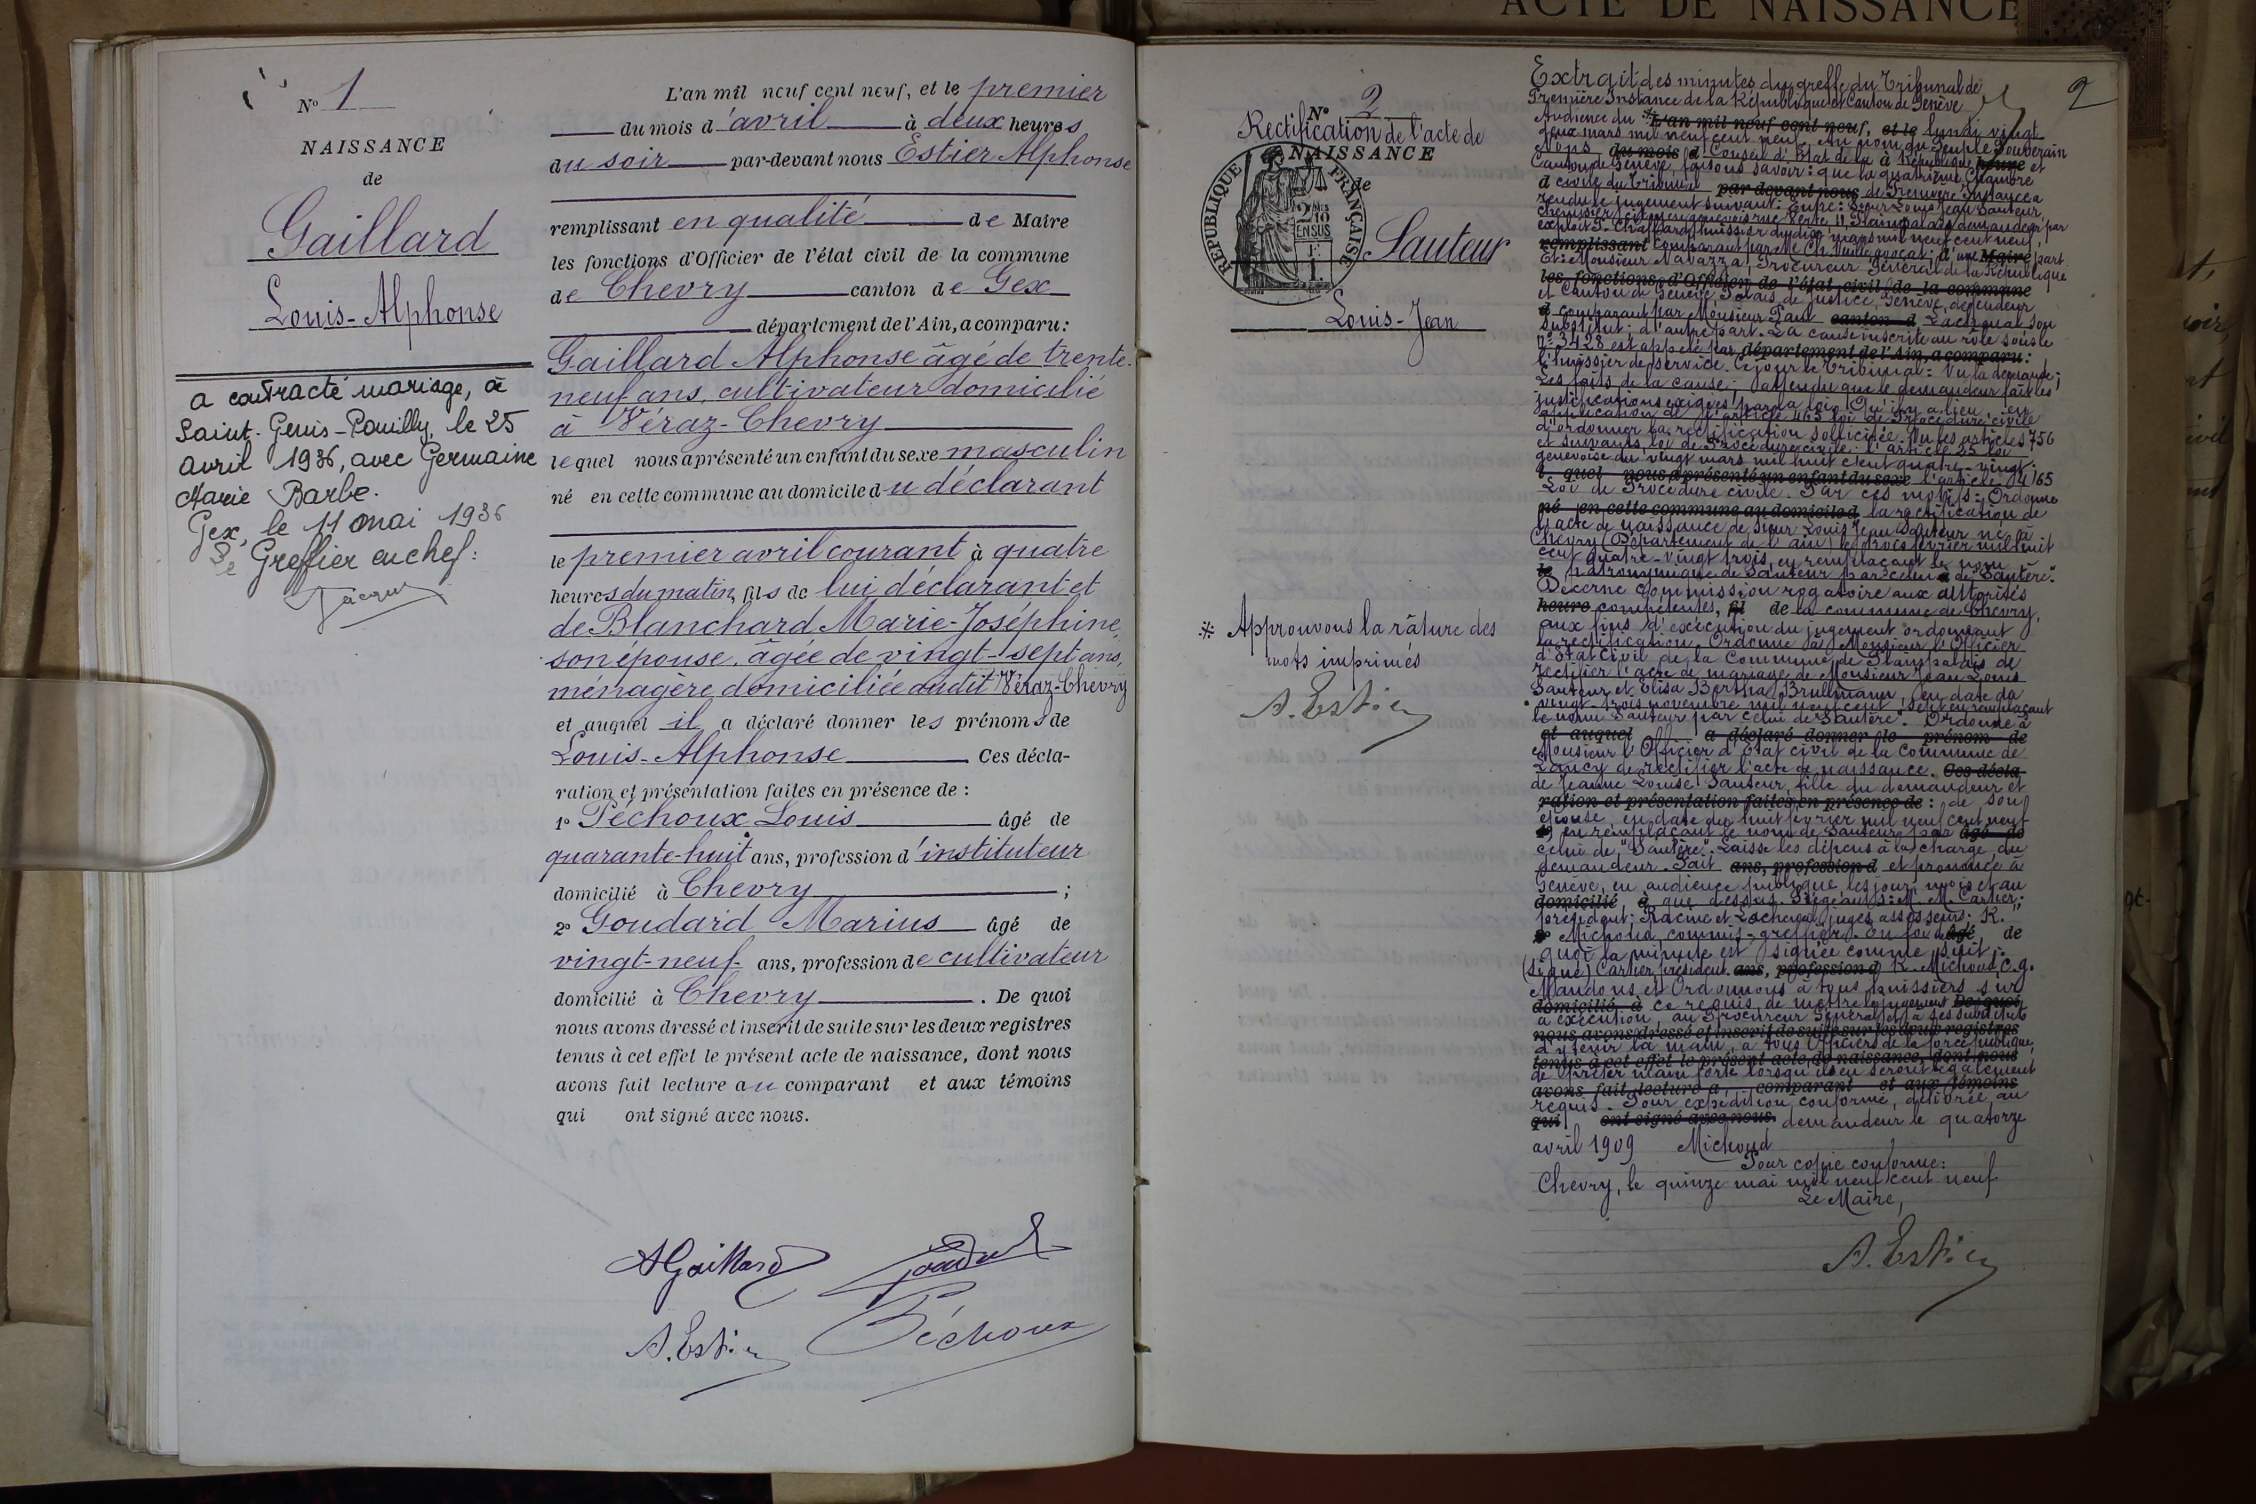 N° 1
NAISSANCE
de
Gaillard
Louis-Alphonse
a contracté mariage, à
Saint-Genis-Pouilly, le 25
avril 1936, avec Germaine
Marie Barbe.
Gex, le 11 mai 1936
Le Greffier en chef:
L'an mil neuf cent neuf, et le premier
du mois d'avril à deux heures
du soir par-devant nous Estier Alphonse
remplissant en qualité de Maire
les fonctions d'Officier de l'état civil de la commune
de Chevry canton de Gex
département de l'Ain, a comparu:
Gaillard Alphonse âgé de trente-
neuf ans, cultivateur domicilié
à Véraz-Chevry
lequel nous a présenté un enfant du sexe masculin
né en cette commune au domicile du déclarant
le premier avril courant à quatre
heures du matin, fils de lui déclarant et
de Blanchard Marie-Joséphine,
son épouse, âgée de vingt-sept ans,
ménagère domiciliée audit Véraz-Chevry
et auquel il a déclaré donner les prénoms de
Louis-Alphonse Ces décla-
ration et présentation faites en présence de :
1° Péchoux Louis âgé de
quarante-huit ans, profession d'instituteur
domicilié à Chevry ;
2° Goudard Marius âgé de
vingt-neuf ans, profession de cultivateur
domicilié à Chevry. De quoi
nous avons dressé et inscrit de suite sur les deux registres
tenus à cet effet le présent acte de naissance, dont nous
avons fait lecture au comparant et aux témoins
qui ont signé avec nous.
AGaillard
A. Estier
Péchoux
ACTE DE NAISSANCE
2
N° 2
Rectification de l'acte de
NAISSANCE
de
REPUBLIQUE FRANÇAISE
2/10 EN SUS
Sauteur
Louis-Jean
※ Approuvons la râture des
mots imprimés
A. Estier
Extrait des minutes du greffe du Tribunal de
Première Instance de la République et Canton de Genève
Audience du ※ L'an mil neuf cent neuf, et le lundi vingt
deux mars mil neuf cent neuf. Au nom du Peuple Souverain
Nous du mois d Conseil d'Etat de la à République heure et
Canton de Genève, faisons savoir: que la quatrième Chambre
d civile du Tribunal par-devant nous de Première Instance a
rendu le jugement suivant: Entre: Sieur Louis Jean Sauteur,
remplissant comparant par Me Ch. avocat; d'une Maire part
Et: Monsieur Navazza, Procureur Général de la République
les fonctions d'Officier de l'état civil de la commune
et Canton de Genève, Palais de Justice, Genève, défendeur
d comparant par Monsieur Paul canton d son
substitut; d'autre part. La cause inscrite au rôle sous le
N° 3428 est appelée par département de l'Ain, a comparu:
l'huissier de service. Ce jour le Tribunal: Vu la demande;
Les faits de la cause; Attendu que le demandeur fait les
justifications exigées par la loi; Qu'il y a lieu, en
application de l'article 463 loi de Procédure civile
d'ordonner la rectification sollicitée. Vu les articles 756
et suivants loi de Procédure civile: l'article 25 loi
genevoise du vingt mars mil huit cent quatre-vingt.
l quel nous a présenté un enfant du sexe l'article
Loi de Procédure civile. Par ces motifs: Ordonne
né en cette commune au domicile d la rectification de
l'acte de naissance de Sieur Louis Jean Sauteur né à
Chevry (Département de l'Ain) le trois février mil huit
cent quatre-vingt trois, en remplaçant le nom
le patronymique de Sauteur par celui à de "Sautère".
Décerne commission rogatoire aux autorités
heure compétentes, fil de la commune de Chevry,
aux fins d'exécution du jugement ordonnant
la rectification. Ordonne à Monsieur l'Officier
d'Etat Civil de la Commune de Plainpalais de
rectifier l'acte de mariage de Monsieur Jean Louis
Sauteur et Elisa Bertha Brullmann, en date du
vingt-trois novembre mil neuf cent sept en remplaçant
le nom Sauteur par celui de "Sautère". Ordonne à
et auquel a déclaré donner le prénom de
Monsieur l'Officier d'Etat civil de la Commune de
Lancy de rectifier l'acte de naissance Ces décla
de Jeanne Louise Sauteur, fille du demandeur et
ration et présentation faites en présence de : de son
épouse, en date du huit février mil neuf cent neuf
1° en remplaçant le nom de Sauteur par âgé de
celui de "Sautère". Laisse les dépens à la charge du
demandeur. Fait ans, profession d et prononcé à
Genève, en audience publique, les jour, mois et an
domicilié à que dessus. Siégeants: M. M. Cartier;
président; Racine et juges assesseurs; K.
2° Michoud, commis-greffier. En foi de âgé de
quoi la minute est signée comme suit:
(Signé) Cartier, président ans, profession d K. Michoud, c. g.
Mandons et Ordonnons à tous huissiers sur
domicilié à ce requis de mettre le jugement De quoi
à exécution, au Procureur Général et à ses substituts
nous avons dressé et inscrit de suite sur les deux registres
d'y tenir la main, à tous Officiers de la force publique,
tenus à cet effet le présent acte de naissance, dont nous
de prêter main forte lorsqu'ils en seront légalement
avons fait lecture a comparant et aux témoins
requis. Pour expédition conforme, délivrée au
qui ont signé avec nous. demandeur le quatorze
avril 1909 Michoud
Pour copie conforme:
Chevry, le quinze mai mil neuf cent neuf
Le Maire,
A. Estier